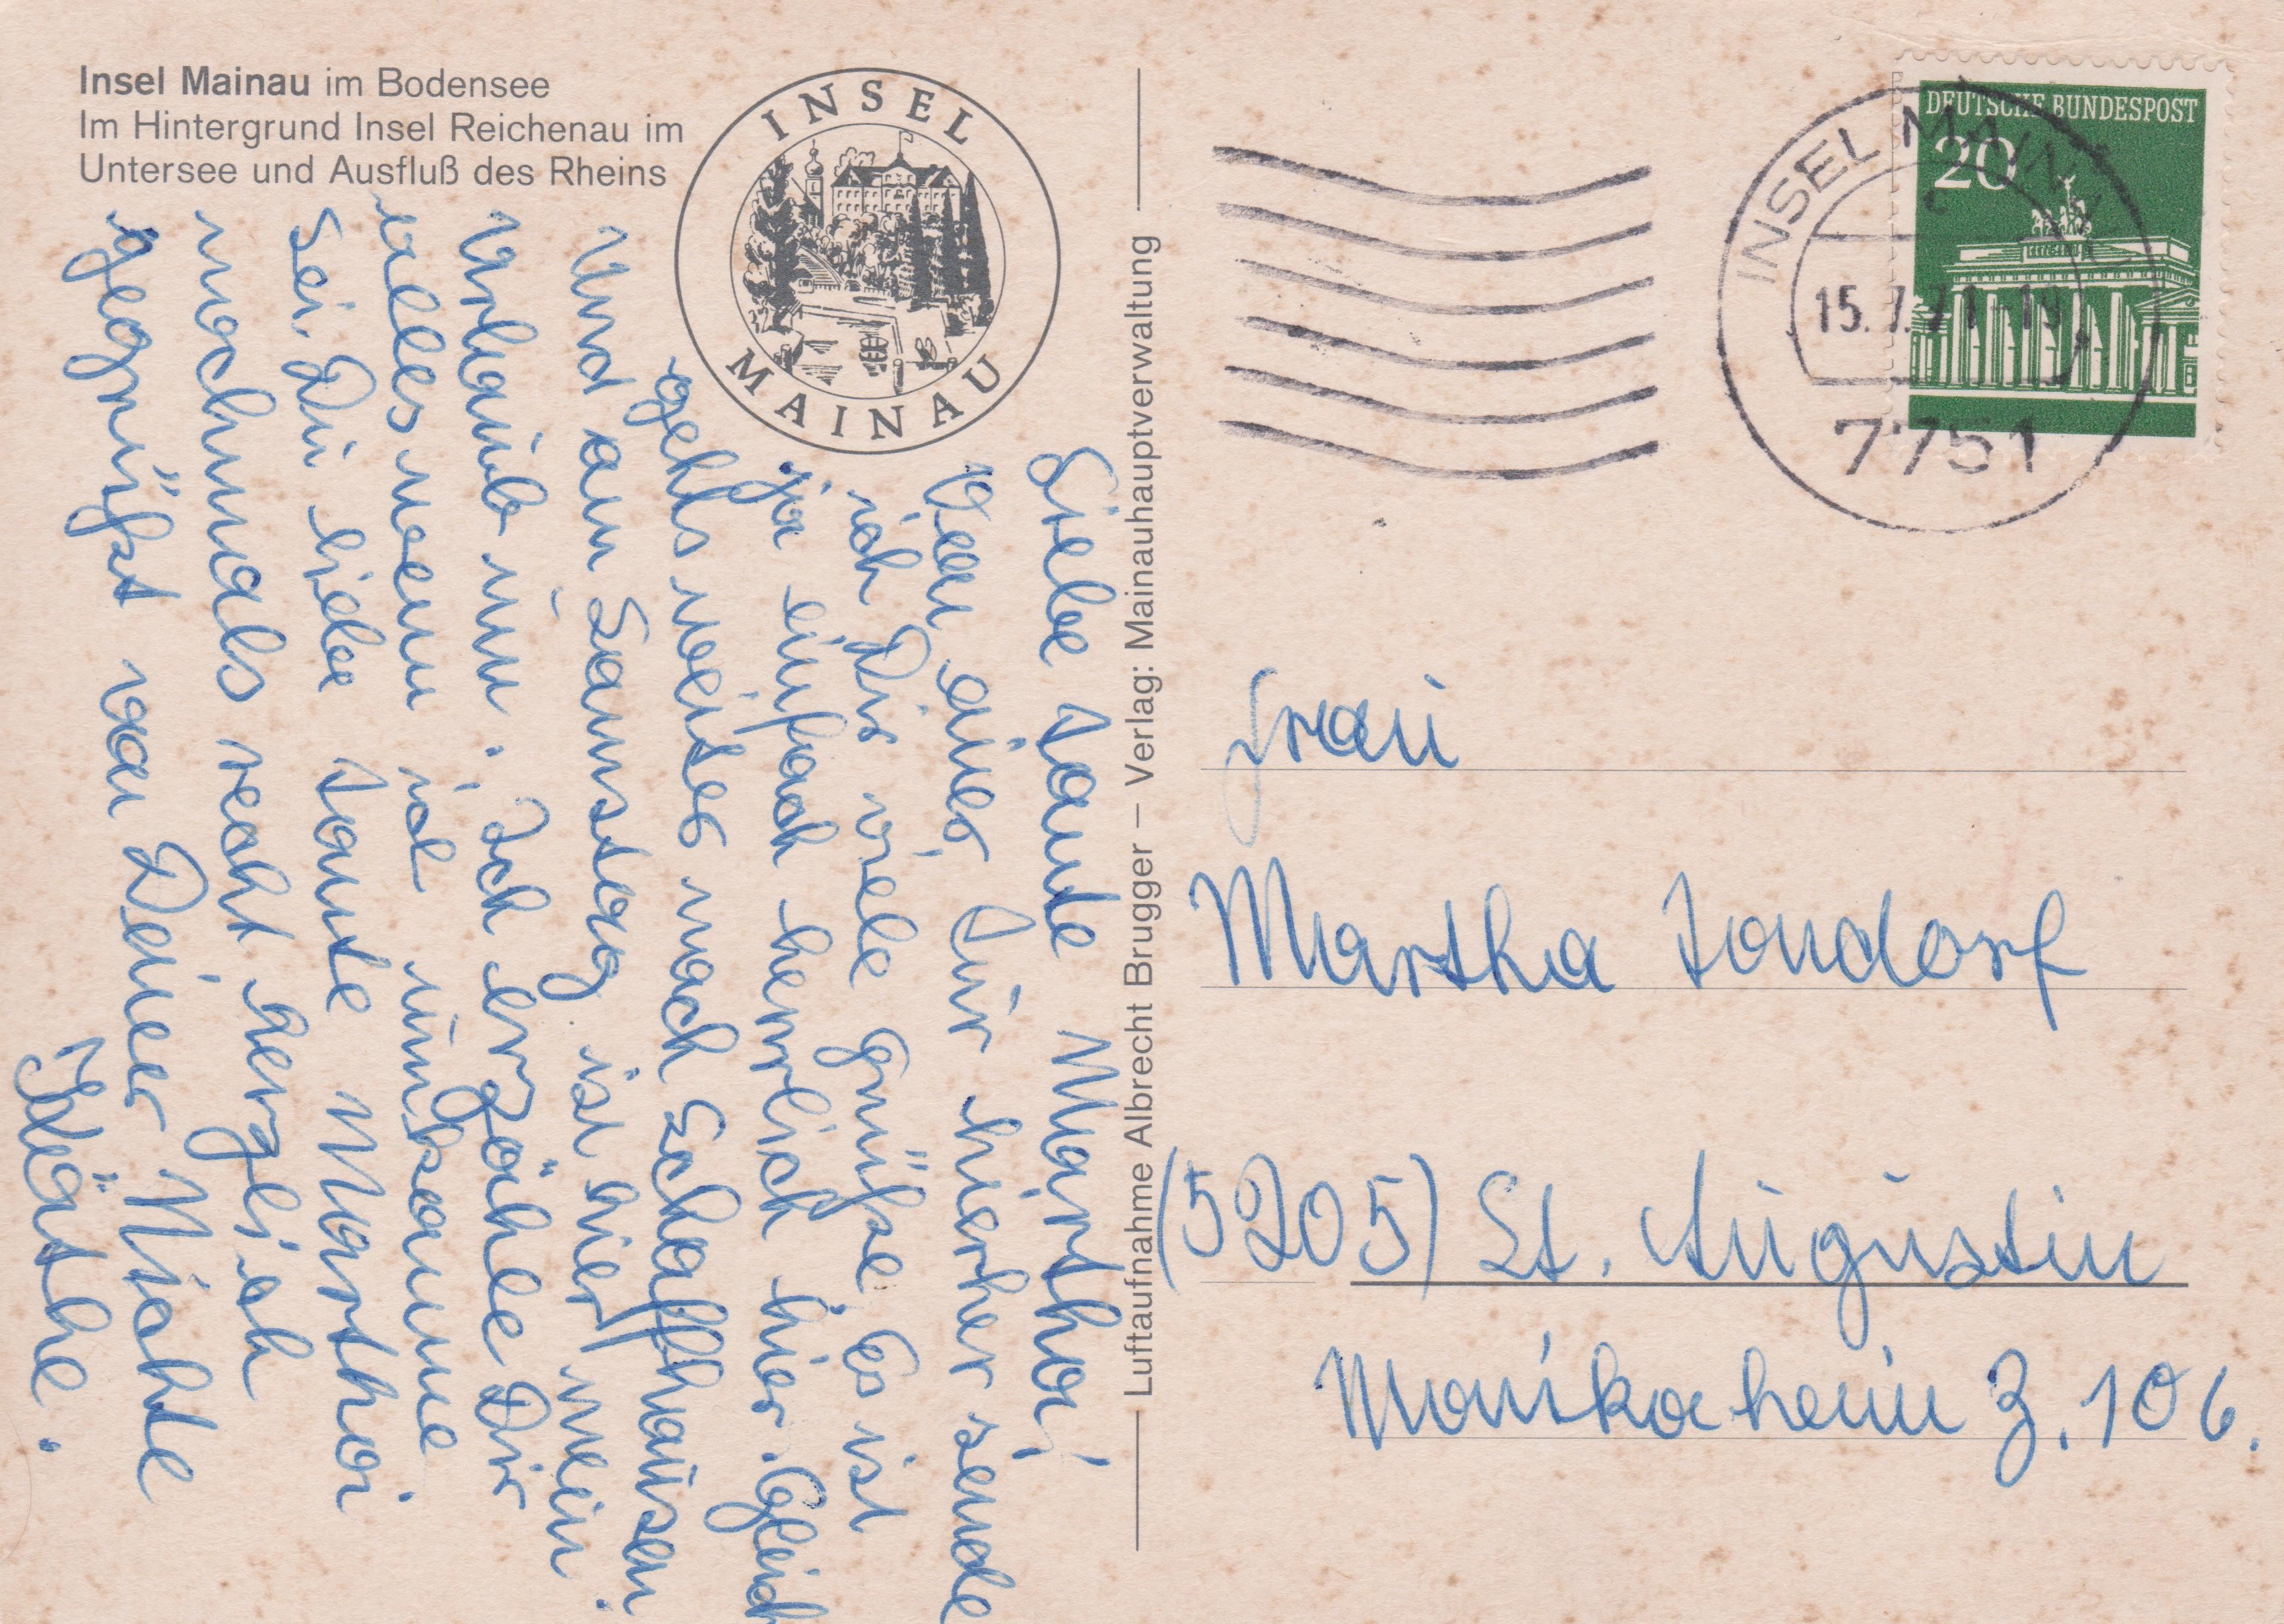 Insel Mainau im Bodensee
Im Hintergrund Insel Reichenau im
Untersee und Ausfluß des Rheins
INSEL
MAINAU
Liebe Tante Martha!
Von einer Tur hierher sende
ich Dir viele Grüße. Es ist
ja einfach herrlich hier. Gleich
gehts weiter nach Schaffhausen.
Und am Samstag ist hier mein
Urlaub um. Ich erzähle Dir
alles wenn ich
Sei Du liebe Tante Martha
nochmals recht herzlich
gegrüßt von Deiner Nichte
Käthe.
Luftaufnahme Albrecht Brugger – Verlag: Mainauhauptverwaltung
DEUTSCHE BUNDESPOST
20
INSEL MAINAU
15.7.71.19
7751
Frau
Martha Tondorf
(5205) St. Augustin
Monikaheim Z. 106.